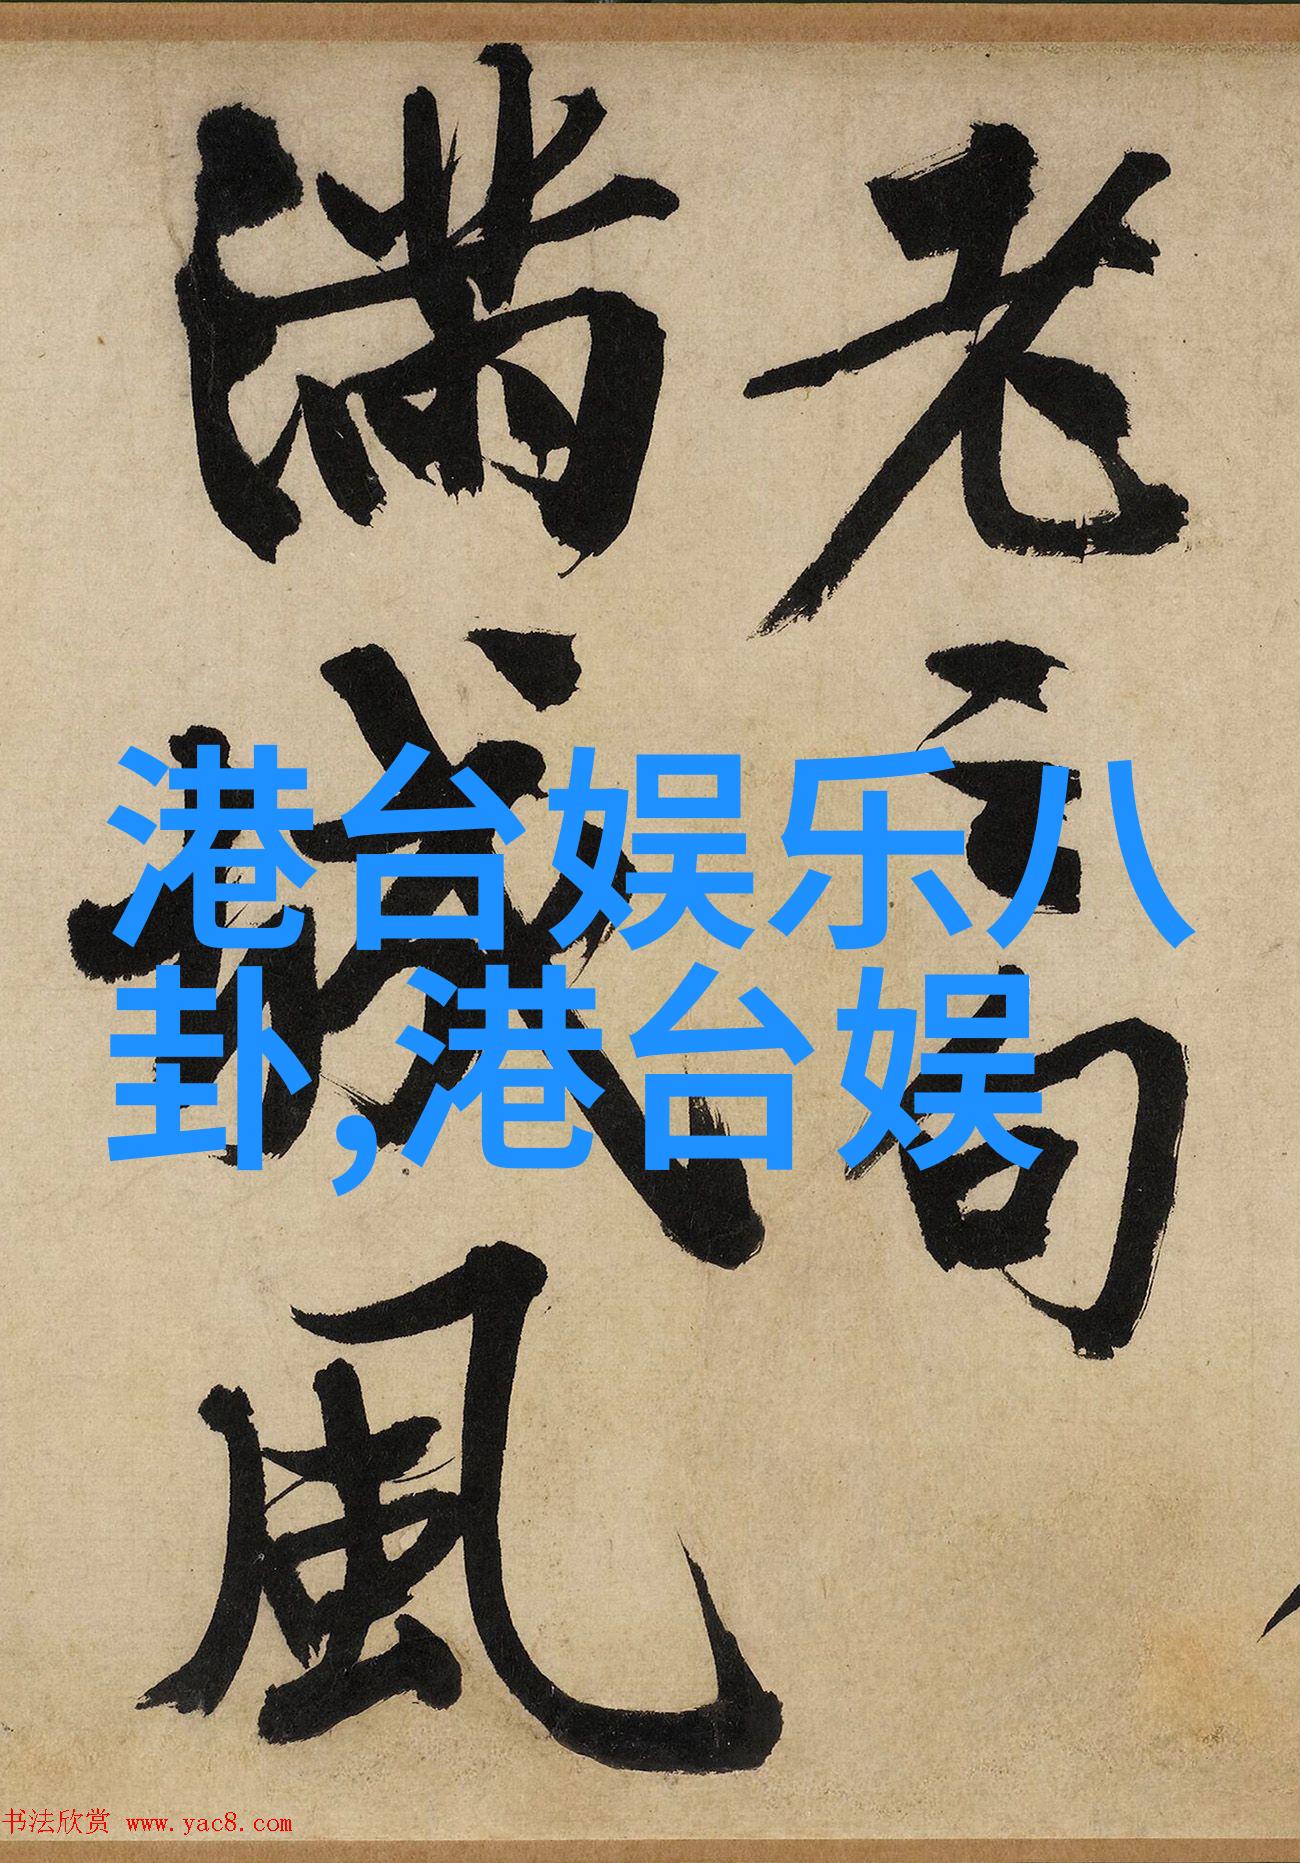 老之句
滿城風
港台娱乐八
卦,港台娱
书法欣赏 www.yac8.com